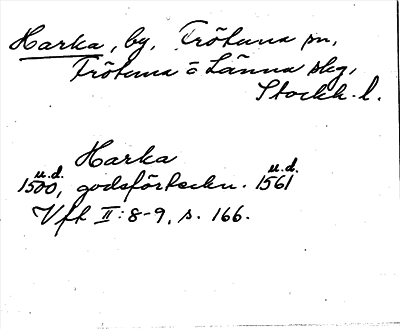 Harka, by, Frötuna sn,
Frötuna o Länna skg,
Stockh. l.
Harka
u.d. u.d.
1500, godsförteckn. 1561
Vfk II:8-9, s. 166.